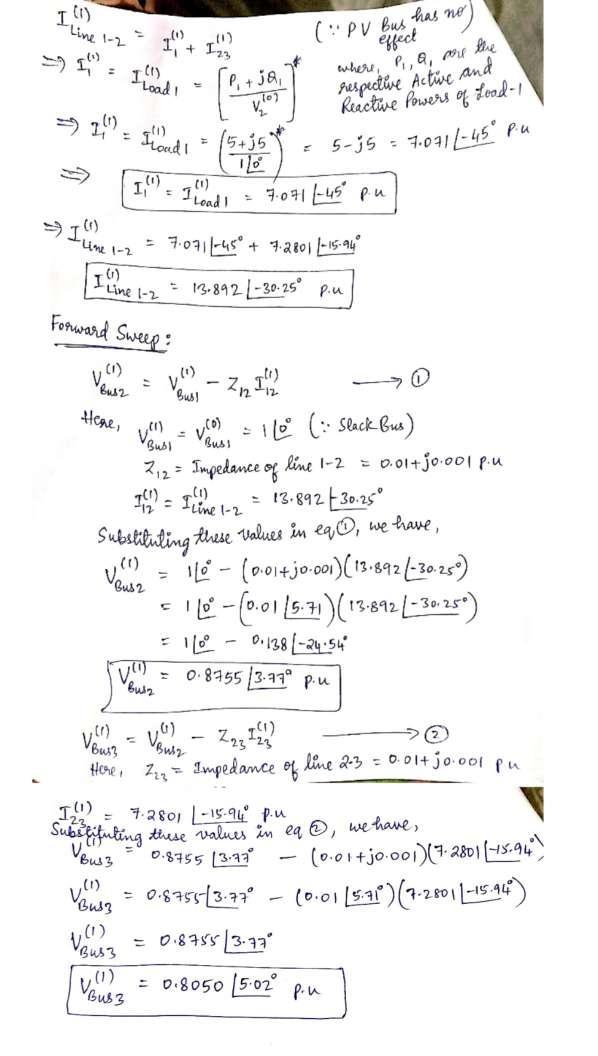 I^(1)_Line 1-2 = I_1^(1) + I_23^(1) (∵ PV Bus has no effect
⇒ I_1^(1) = I^(1)_Load 1 = [P_1 + jQ_1 / V_2^(0)]^* where, P_1, Q_1 are the respective Active and Reactive Powers of Load-1
⇒ I_1^(1) = I^(1)_Load 1 = (5+j5 / 1∠0°)^* = 5-j5 = 7.071∠-45° P.u
⇒ I_1^(1) = I^(1)_Load 1 = 7.071∠-45° p.u
⇒ I^(1)_Line 1-2 = 7.071∠-45° + 7.2801∠-15.94°
I^(1)_Line 1-2 = 13.892∠-30.25° p.u
Forward Sweep:
V^(1)_Bus2 = V^(1)_Bus1 - Z_12 I_12^(1) → ①
Here, V^(1)_Bus1 = V^(0)_Bus1 = 1∠0° (∵ Slack Bus)
Z_12 = Impedance of line 1-2 = 0.01+j0.001 p.u
I_12^(1) = I^(1)_Line 1-2 = 13.892∠-30.25°
Substituting these values in eq①, we have,
V^(1)_Bus2 = 1∠0° - (0.01+j0.001)(13.892∠-30.25°)
= 1∠0° - (0.01∠5.71)(13.892∠-30.25°)
= 1∠0° - 0.138∠-24.54°
V^(1)_Bus2 = 0.8755∠3.77° p.u
V^(1)_Bus3 = V^(1)_Bus2 - Z_23 I_23^(1) → ②
Here, Z_23 = Impedance of line 2-3 = 0.01+j0.001 p u
I_23^(1) = 7.2801∠-15.94° p.u
Substituting these values in eq ②, we have,
V^(1)_Bus3 = 0.8755∠3.77° - (0.01+j0.001)(7.2801∠-15.94°)
V^(1)_Bus3 = 0.8755∠3.77° - (0.01∠5.71°)(7.2801∠-15.94°)
V^(1)_Bus3 = 0.8755∠3.77°
V^(1)_Bus3 = 0.8050∠5.02° p.u